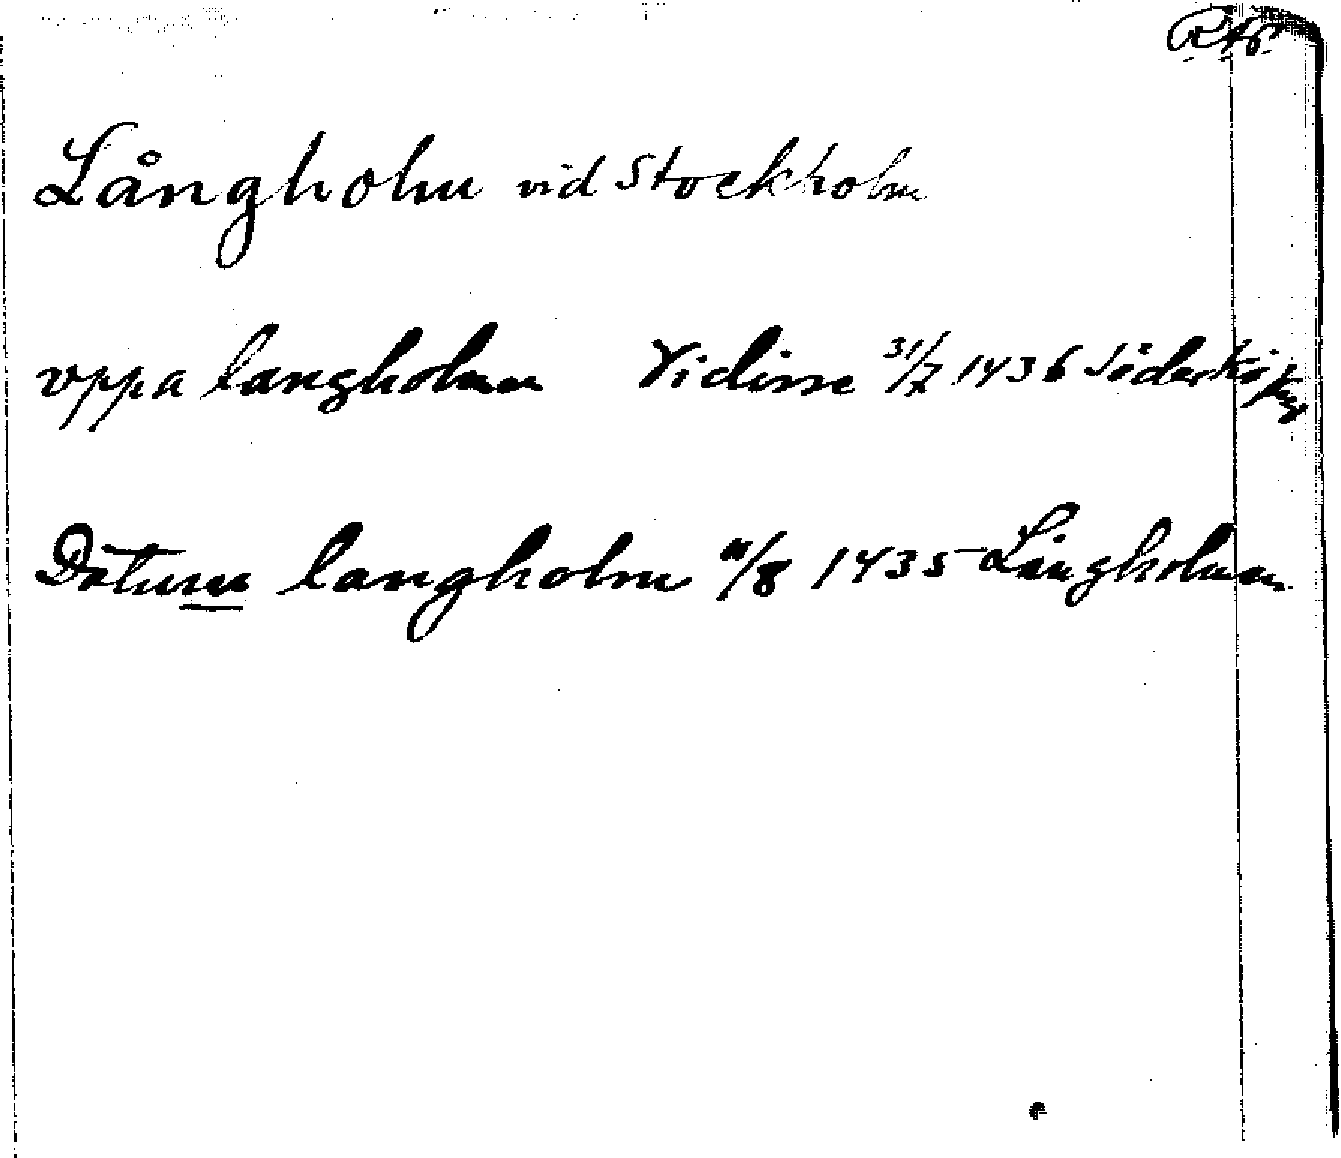 RAp
Långholm vid Stockholm
vppa langholmen Vidisse 31/7 1436 Söderköping
Datum langholm 11/8 1435 Långholmen